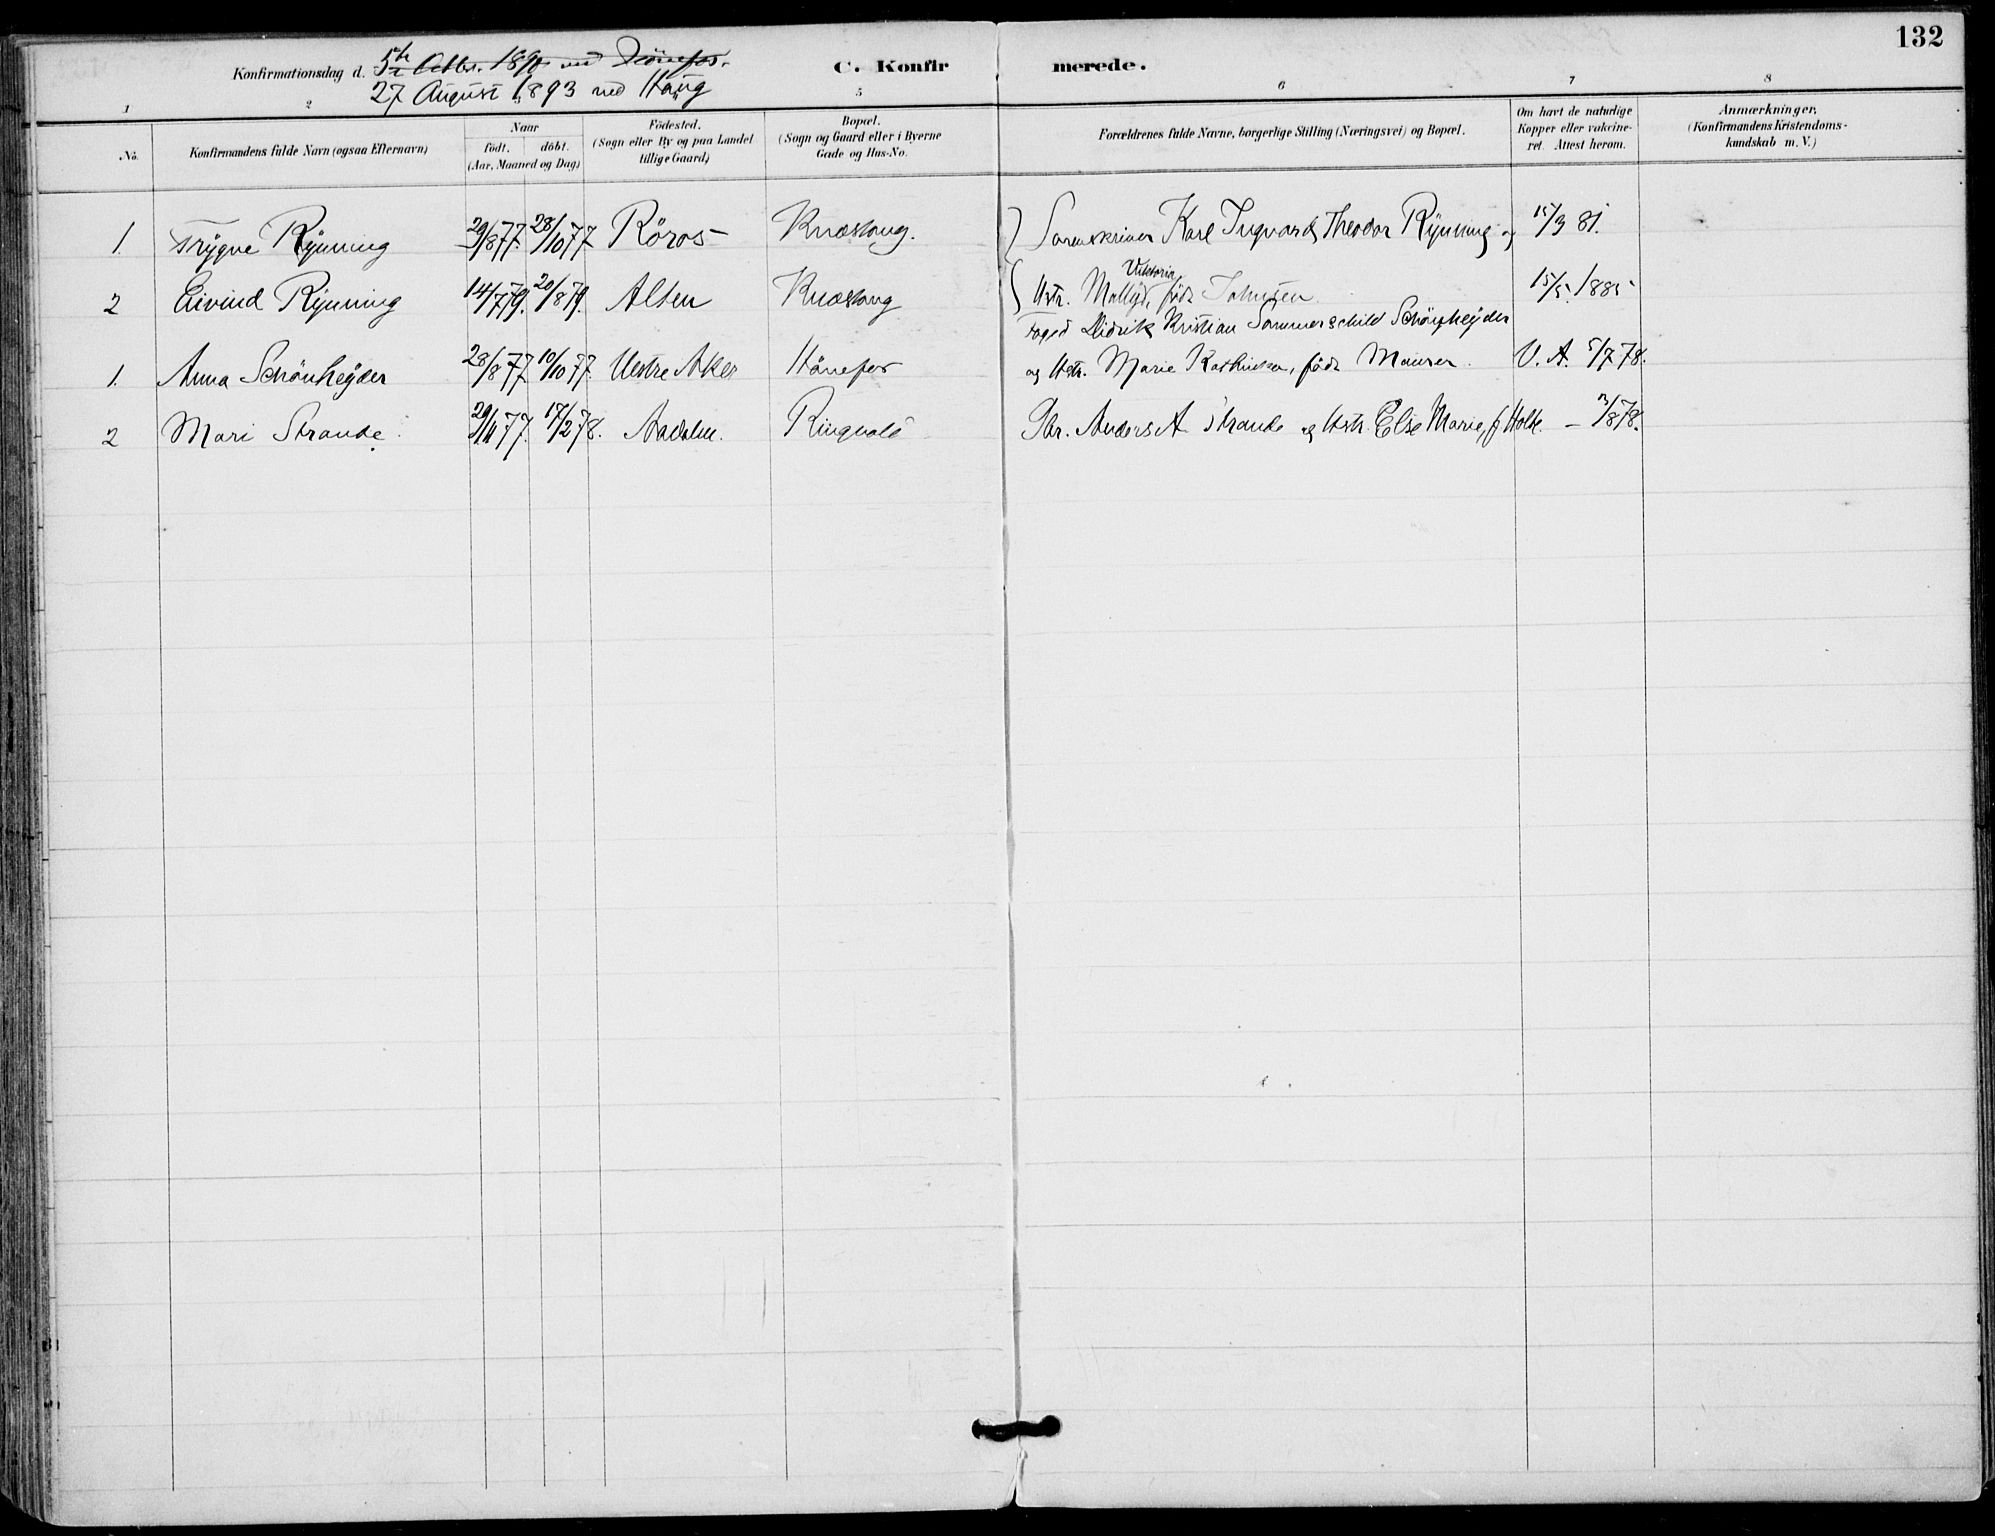 132
Konfirmationsdag d. 5te Oktbr. 1890 ved Hönefos.
C. Konfir merede.
27 August 1893 ved Haug
1 2 3 4 5 6 7 8
No. Konfirmandens fulde Navn (ogsaa Efternavn) Naar födt. döbt. (Aar, Maaned og Dag) Födested. (Sogn eller By og paa Landet tillige Gaard) Bopæl. (Sogn og Gaard eller i Byerne Gade og Hus-No. Forældrenes fulde Navne, borgerlige Stilling (Næringsvei) og Bopæl. Om havt de naturlige Kopper eller vakcineret. Attest herom. Anmærkninger. (Konfirmandens Kristendomskundskab m. V.)
1. Trygve Rynning 29/8 77. 28/10 77 Röros Knæstang. Sorenskriver Karl Ingvard Theodor Rynning og 15/3 81.
2 Eivind Rynning 14/7 79. 20/8 79. Alten Knæstang Hstr. Viktoria födt Johnsen 15/5 1885
Foged Didrik Kristian Sommerschild Schönheyder
1. Anna Schönheyder 28/8 77. 10/10 77. Vestre Aker Hönefos og Hstr. Marie Kathinka, födt Maurer. V. A. 5/7 78.
2 Mari Strande. 29/11 77. 17/2 78. Aadalen. Ringvold Gbr. Anders A Strande og Hstr. Else Marie, f Holte. – 3/8 78.